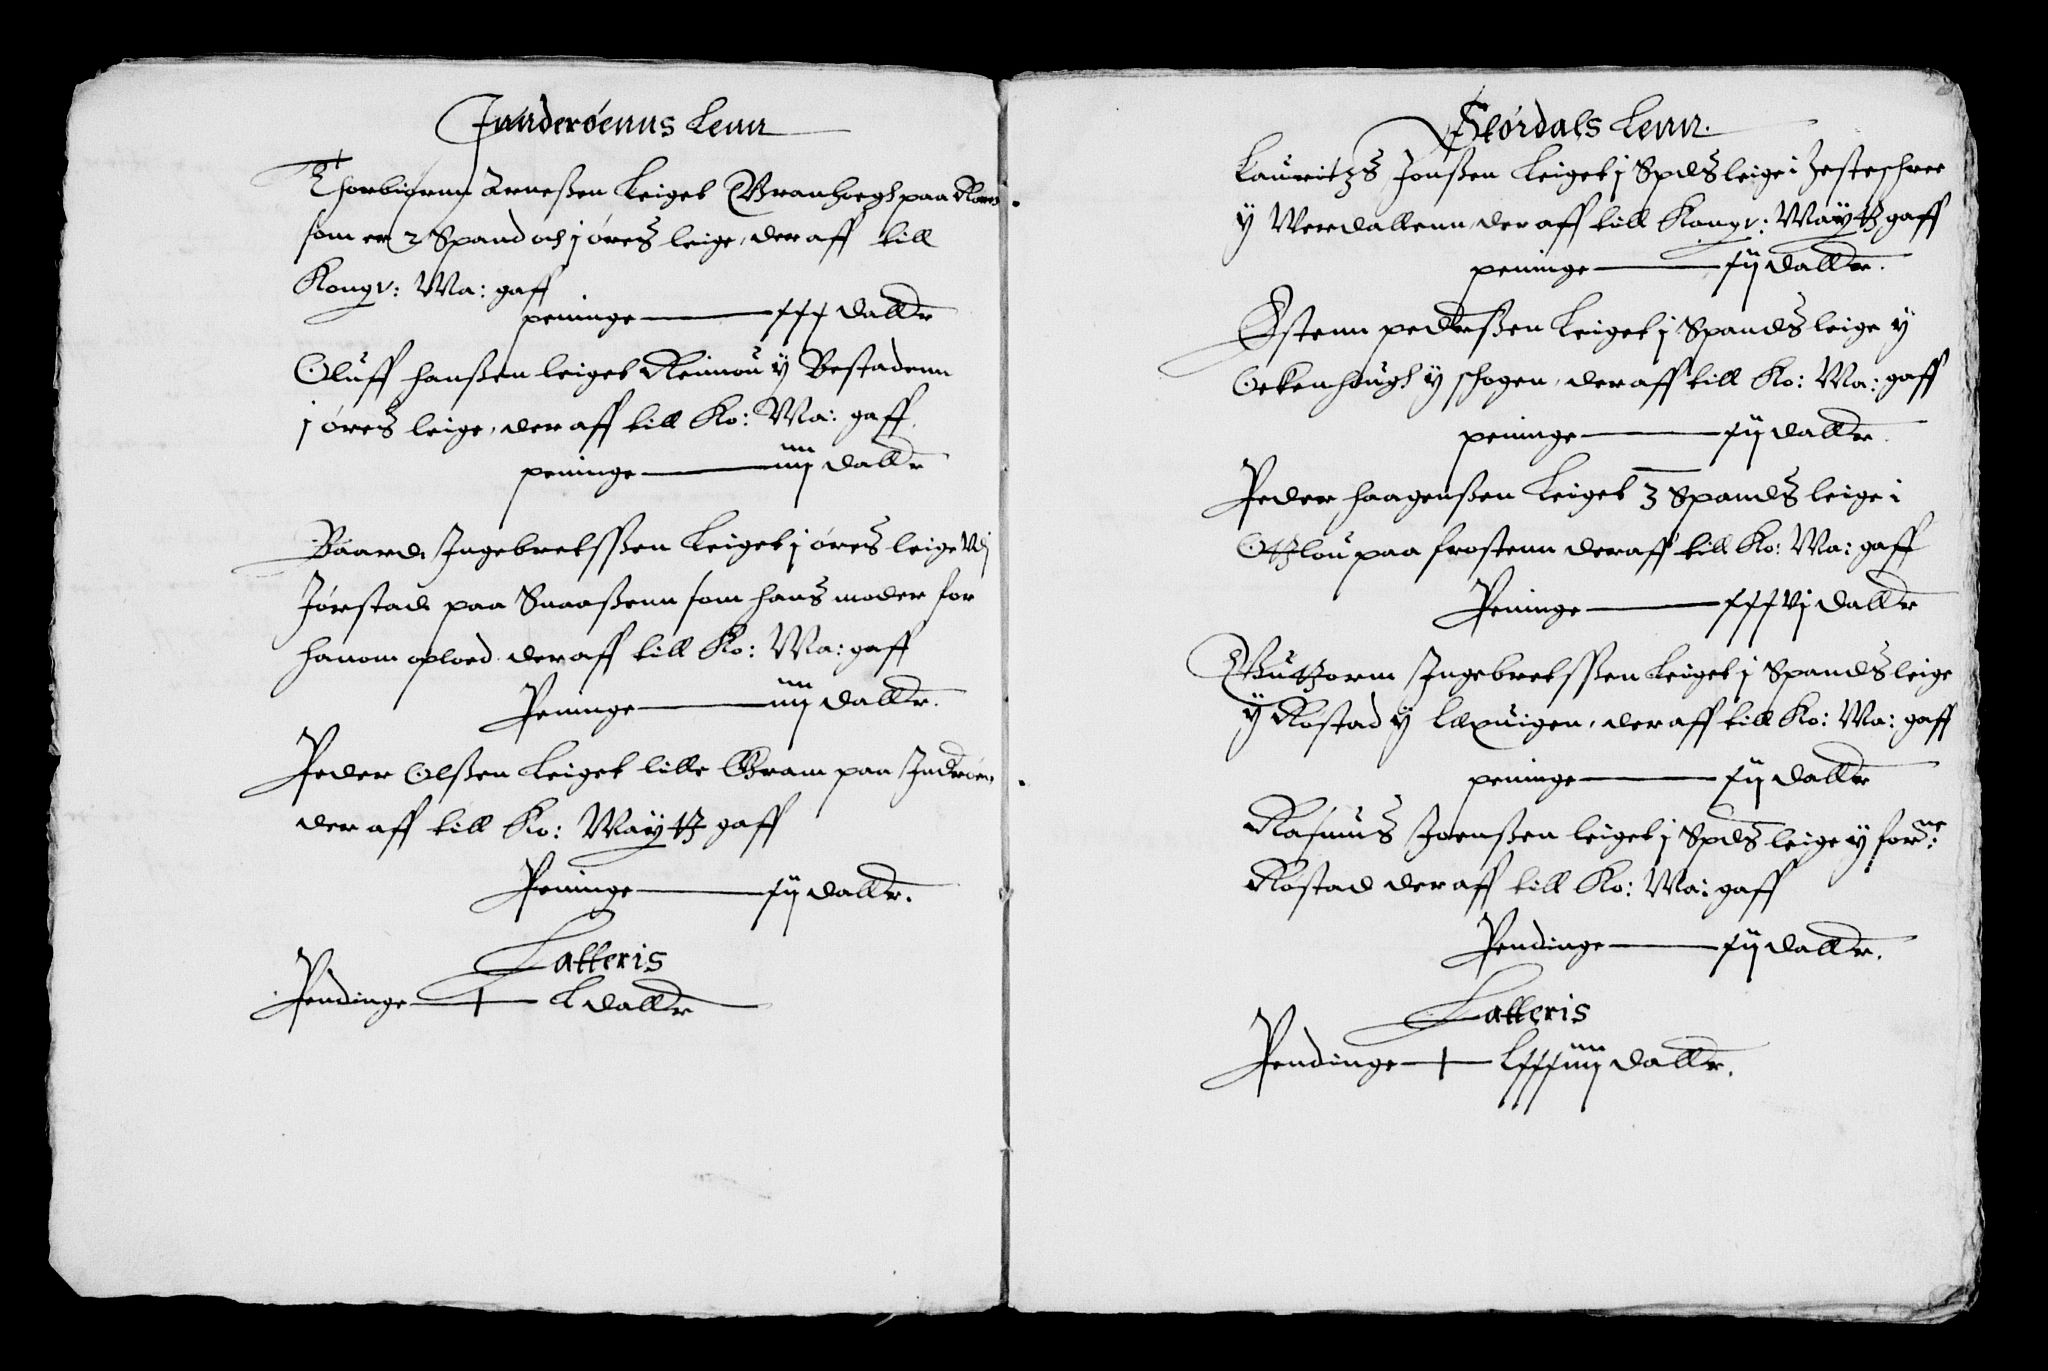 Jnnderøenns Lenn
Thorbiørnn Arneßen Leiget Granhoegh paa
som er 2 Spand och j øres leige, der aff till
Kongr: Ma: gaff
peninge — xxx dallr
Oluff hanßen leiget Reinou ÿ Bestadenn
j øres leige, der aff till Ko: Ma: gaff.
peninge — iiij dallr
Baard Jngebretssßen Leiget j øres leige vdj
Jørstad paa Snaaßenn som hans moder for
hanom oploed. der aff till Ko: Ma: gaff
Peninge — iiij dallr.
Peder Olßen Leiget lille Gram paa Jndrøen
der aff till Ko: Maÿtz gaff
Peninge — xij dallr.
Latteris
Pendinge — L dallr

Størdals Lenn.
Lauritzs Jonßen Leiget j Spds leige i
ÿ Werdallenn, der aff till Kongr: Maÿtz gaff
peninge — xij dallr.
Østenn pederßen Leiget j Spands leige ÿ
Eckenhough ÿ schogen, der aff till Ko: Ma: gaff
peninge — xij dallr.
Peder haagenßen Leiget 3 Spands leige i
Otzlou paa frostenn der aff till Ko: Ma: gaff
Peninge — xxxvj dallr
Guttorm Jngebretssßen Leiget j Spands leige
ÿ Røstad ÿ Lexuigen, der aff till Ko: Ma: gaff
peninge — xij dallr
Rasmus Joenßen leiget j Spds leige ÿ forne:
Røstad der aff till Ko: Ma: gaff
Pendinge — xij dallr.
Latteris
Pendinge — Lxxxiiij dallr.